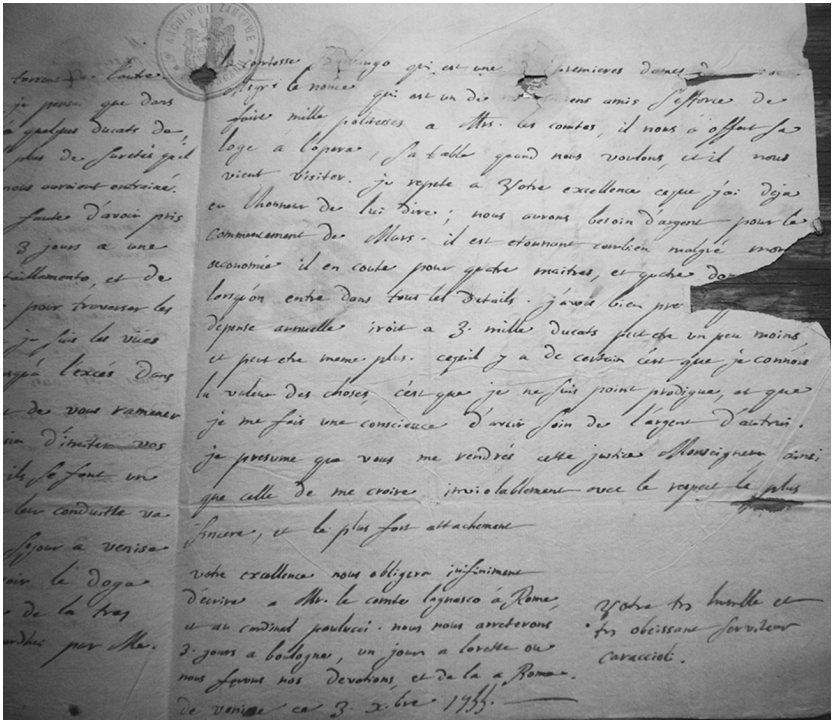 je pensai que dans
a quelques ducats de
plus de suretés qu'il
nous auraient entrainé.
faute d'avoir pris
3 jours a une
taillamento, et de
pour traverser les
je suis les vües
l'excés dans
de vous ramener
d'imiter vos
ils se font un
leur conduitte va
sejour a venise
le doge
de la tres
par Mr.
qui est une premieres dames
Mgr. le nonce qui est un de mes anciens amis s'efforce de
faire mille politesses a Mrs. les comtes, il nous a offert sa
loge a l'opera, sa table quand nous voulons, et il nous
vient visiter. je repete a Votre excellence ce que j'ai deja
eu l'honneur de lui dire; nous aurons besoin d'argent pour le
commencement de Mars. il est etonnant combien malgré mon
oeconomie il en coute pour quatre maitres, et quatre dom
lorsqu'on entre dans tous les details. j'avois bien pre
dépense annuelle iroit a 3. mille ducats peut etre un peu moins
et peut etre meme plus. ce qu'il y a de certain c'est que je connois
la valeur des choses, c'est que je ne suis point prodigue, et que
je me fais une conscience d'avoir soin de l'argent d'autrui.
je presume que vous me rendrés cette justice Monseigneur ainsi
que celle de me croire inviolablement avec le respect le plus
sincere, et le plus fort attachement
votre excellence nous obligera infiniment
d'ecrire a Mr. le comte lagnasco à Rome,
et au cardinal paulucci. nous nous arreterons
3. jours a boulogne, un jour a lorette ou
nous ferons nos devotions, et de la a Rome.
de venise ce 3. xbre 1755.
Votre trs humble et
trs obeissant serviteur
caraccioli.